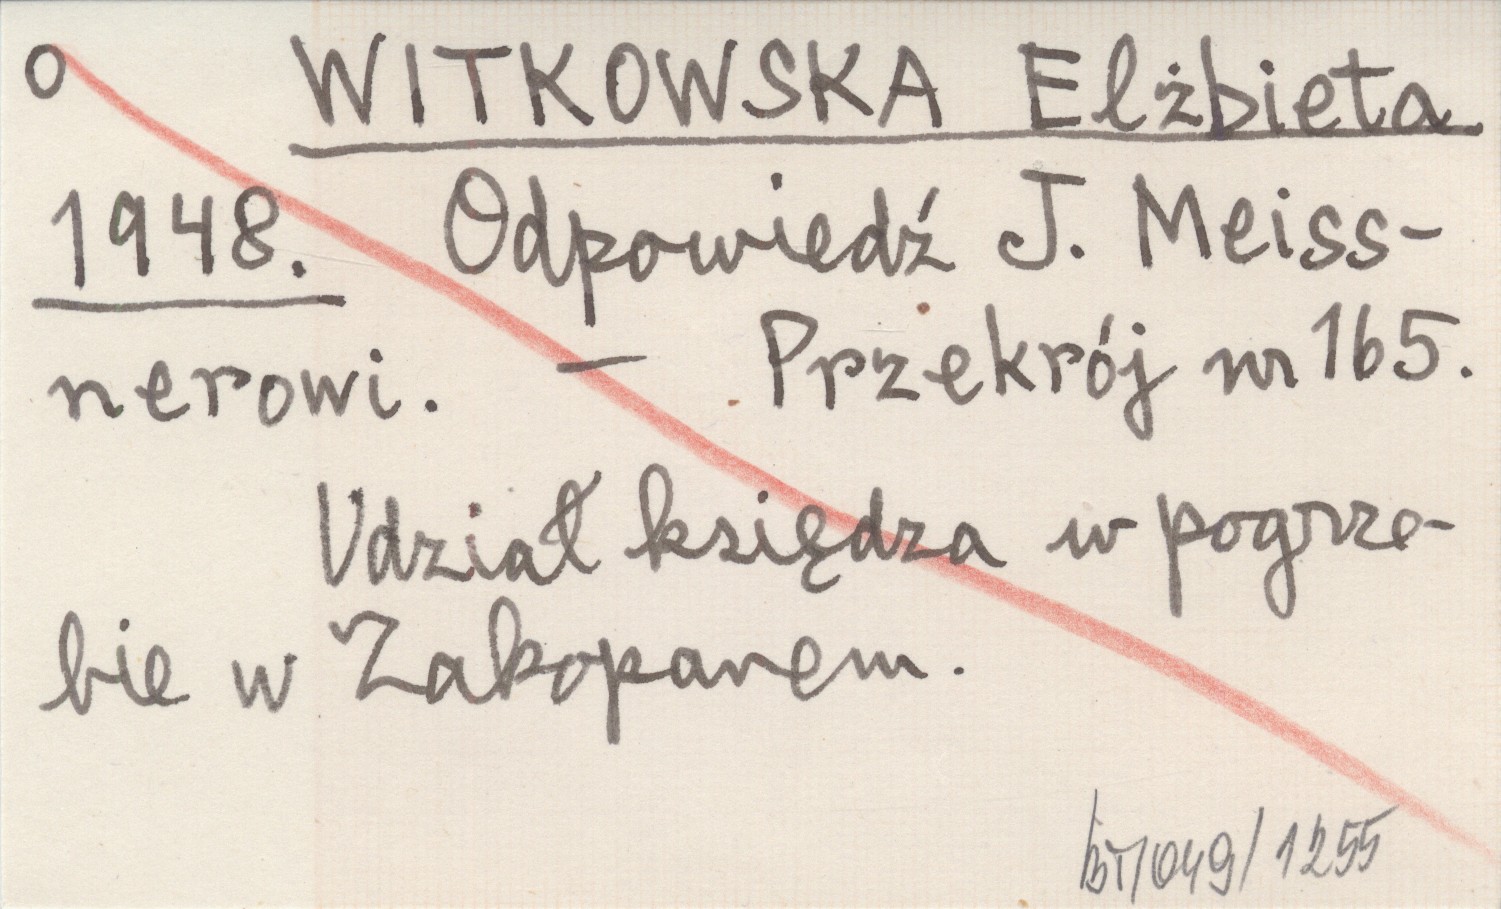 o WITKOWSKA Elżbieta.
1948. Odpowiedź J. Meiss-
nerowi. — Przekrój nr 165.
Udział księdza w pogrze-
bie w Zakopanem.
BT/049/1255